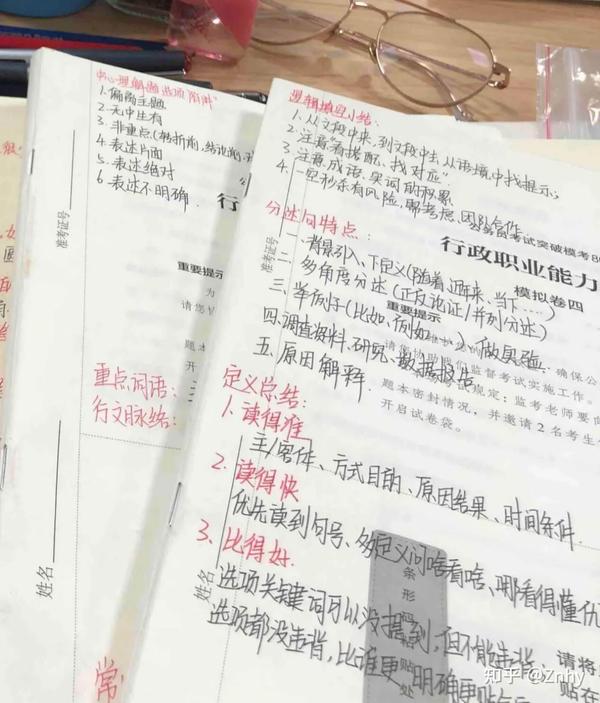 中心理解题选项"陷阱"
1.偏离主题
2.无中生有
3.非重点(转折前,
4.表述片面
5.表述绝对
6.表述不明确
准考证号
行
重要提示
为
请您
题本
开
重点词语:
行文脉络:
姓名
常
逻辑填空小结:
1.从文段中来,到文段中去,从语境中找提示;
2.注意"看搭配、找对应"
3.注意成语、实词的积累
4.一空秒杀有风险,需考虑团队合作.
公务员考试突破模考
行政职业能力
模拟卷四
准考证号
重要提示
分述句特点:
一.背景引入、下定义(随着、近年来、当下……)
二.多角度分述(正反论证/并列分述)
三.举例子(比如、例如……)、做实验
四.调查资料、研究、数据报告
五.原因解释.
维护您的
确保公
请您协助我们监督考试实施工作。
规定:监考老师要向
题本密封情况,并邀请2名考生
开启试卷袋。
定义总结:
1.读得准
主/客体、方式目的、原因结果、时间条件.
2.读得快
优先读到句号、多定义问啥看啥、哪看得懂优
3.比得好.
选项关键词可以没提到,但不能违背.
选项都没违背,比谁更明确更贴
姓名
条形码粘贴处
请将
贴在
知乎 @Znhy